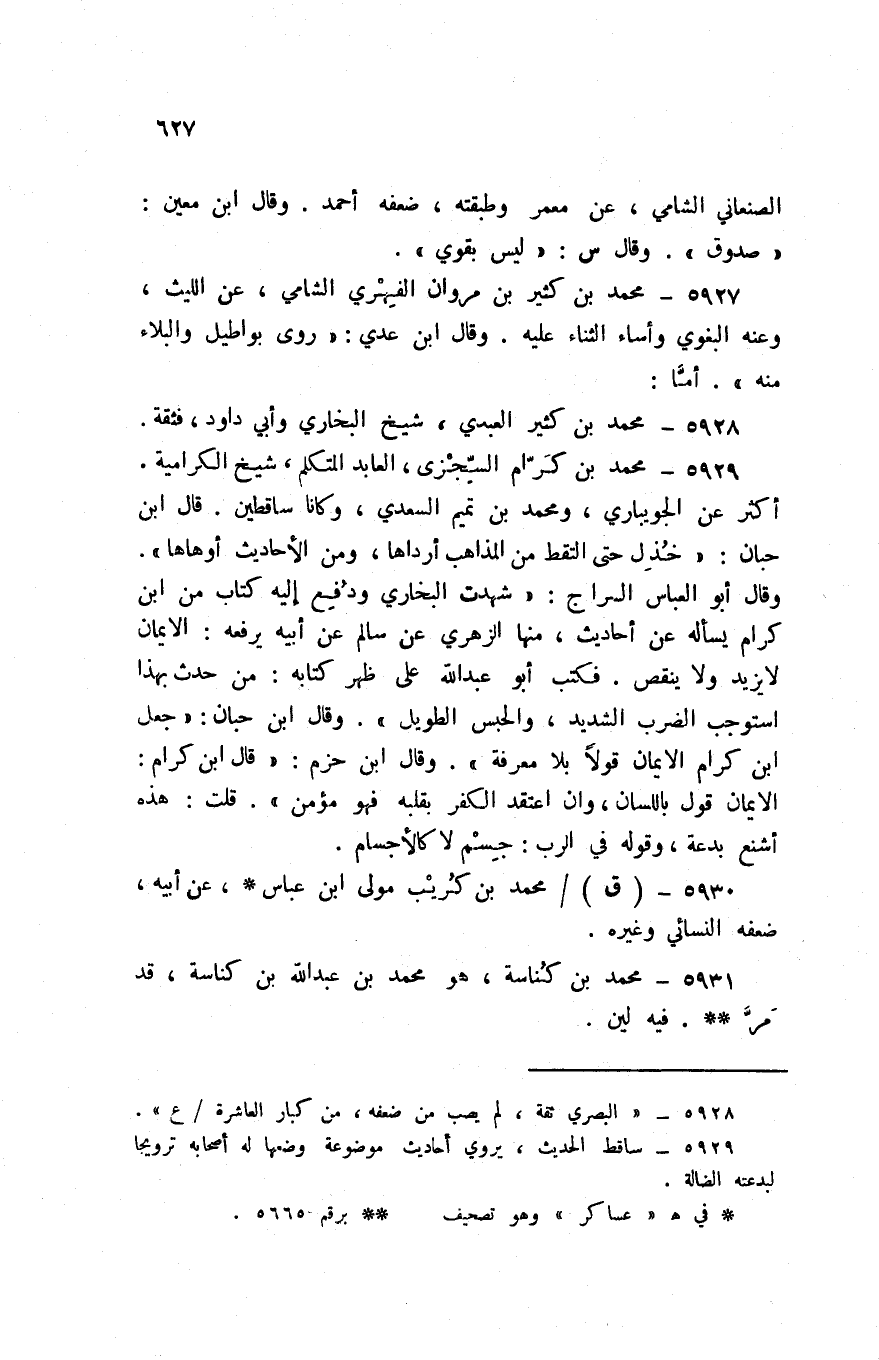 ٦٢٧
الصنعاني الشامي ، عن معمر وطبقته ، ضعفه أحمد . وقال ابن معين :
« صدوق » . وقال س : « ليس بقوي » .
٥٩٢٧ – محمد بن كثير بن مروان الفِهْري الشامي ، عن الليث ،
وعنه البغوي وأساء الثناء عليه . وقال ابن عدي : « روى بواطيل والبلاء
منه » . أمَّا :
٥٩٢٨ – محمد بن كثير العبدي ، شيخ البخاري وأبي داود ، فثقة .
٥٩٢٩ – محمد بن كَرّام السِّجْزى ، العابد المتكلم ، شيخ الكرامية .
أكثر عن الجويباري ، ومحمد بن تميم السعدي ، وكانا ساقطين . قال ابن
حبان : « خُذِل حتى التقط من المذاهب أرداها ، ومن الأحاديث أوهاها » .
وقال أبو العباس السراج : « شهدت البخاري ودُفِع إليه كتاب من ابن
كرام يسأله عن أحاديث ، منها الزهري عن سالم عن أبيه يرفعه : الايمان
لايزيد ولا ينقص . فكتب أبو عبدالله على ظهر كتابه : من حدث بهذا
استوجب الضرب الشديد ، والحبس الطويل » . وقال ابن حبان : « جعل
ابن كرام الايمان قولاً بلا معرفة » . وقال ابن حزم : « قال ابن كرام :
الايمان قول باللسان ، وان اعتقد الكفر بقلبه فهو مؤمن » . قلت : هذه
أشنع بدعة ، وقوله في الرب : جِسْم لا كالأجسام .
٥٩٣٠ – ( ق ) / محمد بن كُرَيْب مولى ابن عباس * ، عن أبيه ،
ضعفه النسائي وغيره .
٥٩٣١ – محمد بن كُناسة ، هو محمد بن عبدالله بن كناسة ، قد
مَرَّ ** . فيه لين .
٥٩٢٨ – « البصري ثقة ، لم يصب من ضعفه ، من كبار العاشرة / ع » .
٥٩٢٩ – ساقط الحديث ، يروي أحاديث موضوعة وضعها له أصحابه ترويجا
لبدعته الضالة .
* في ه « عساكر » وهو تصحيف ** برقم ٥٦٦٥ .